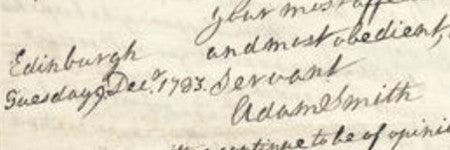 Your most affe
and most obedient,
Edinburgh
Servant
Tuesday 9. Decr. 1783.
Adam Smith
continue to be of opini